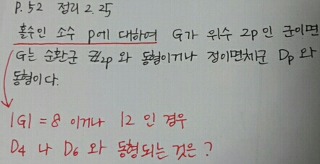 P.52 정리 2.25
홀수인 소수 p에 대하여 G가 위수 2p 인 군이면
G는 순환군 ℤ₂p 와 동형이거나 정이면체군 Dp 와
동형이다.
|G| = 8 이거나 12 인 경우
D4 나 D6 와 동형되는 것은?